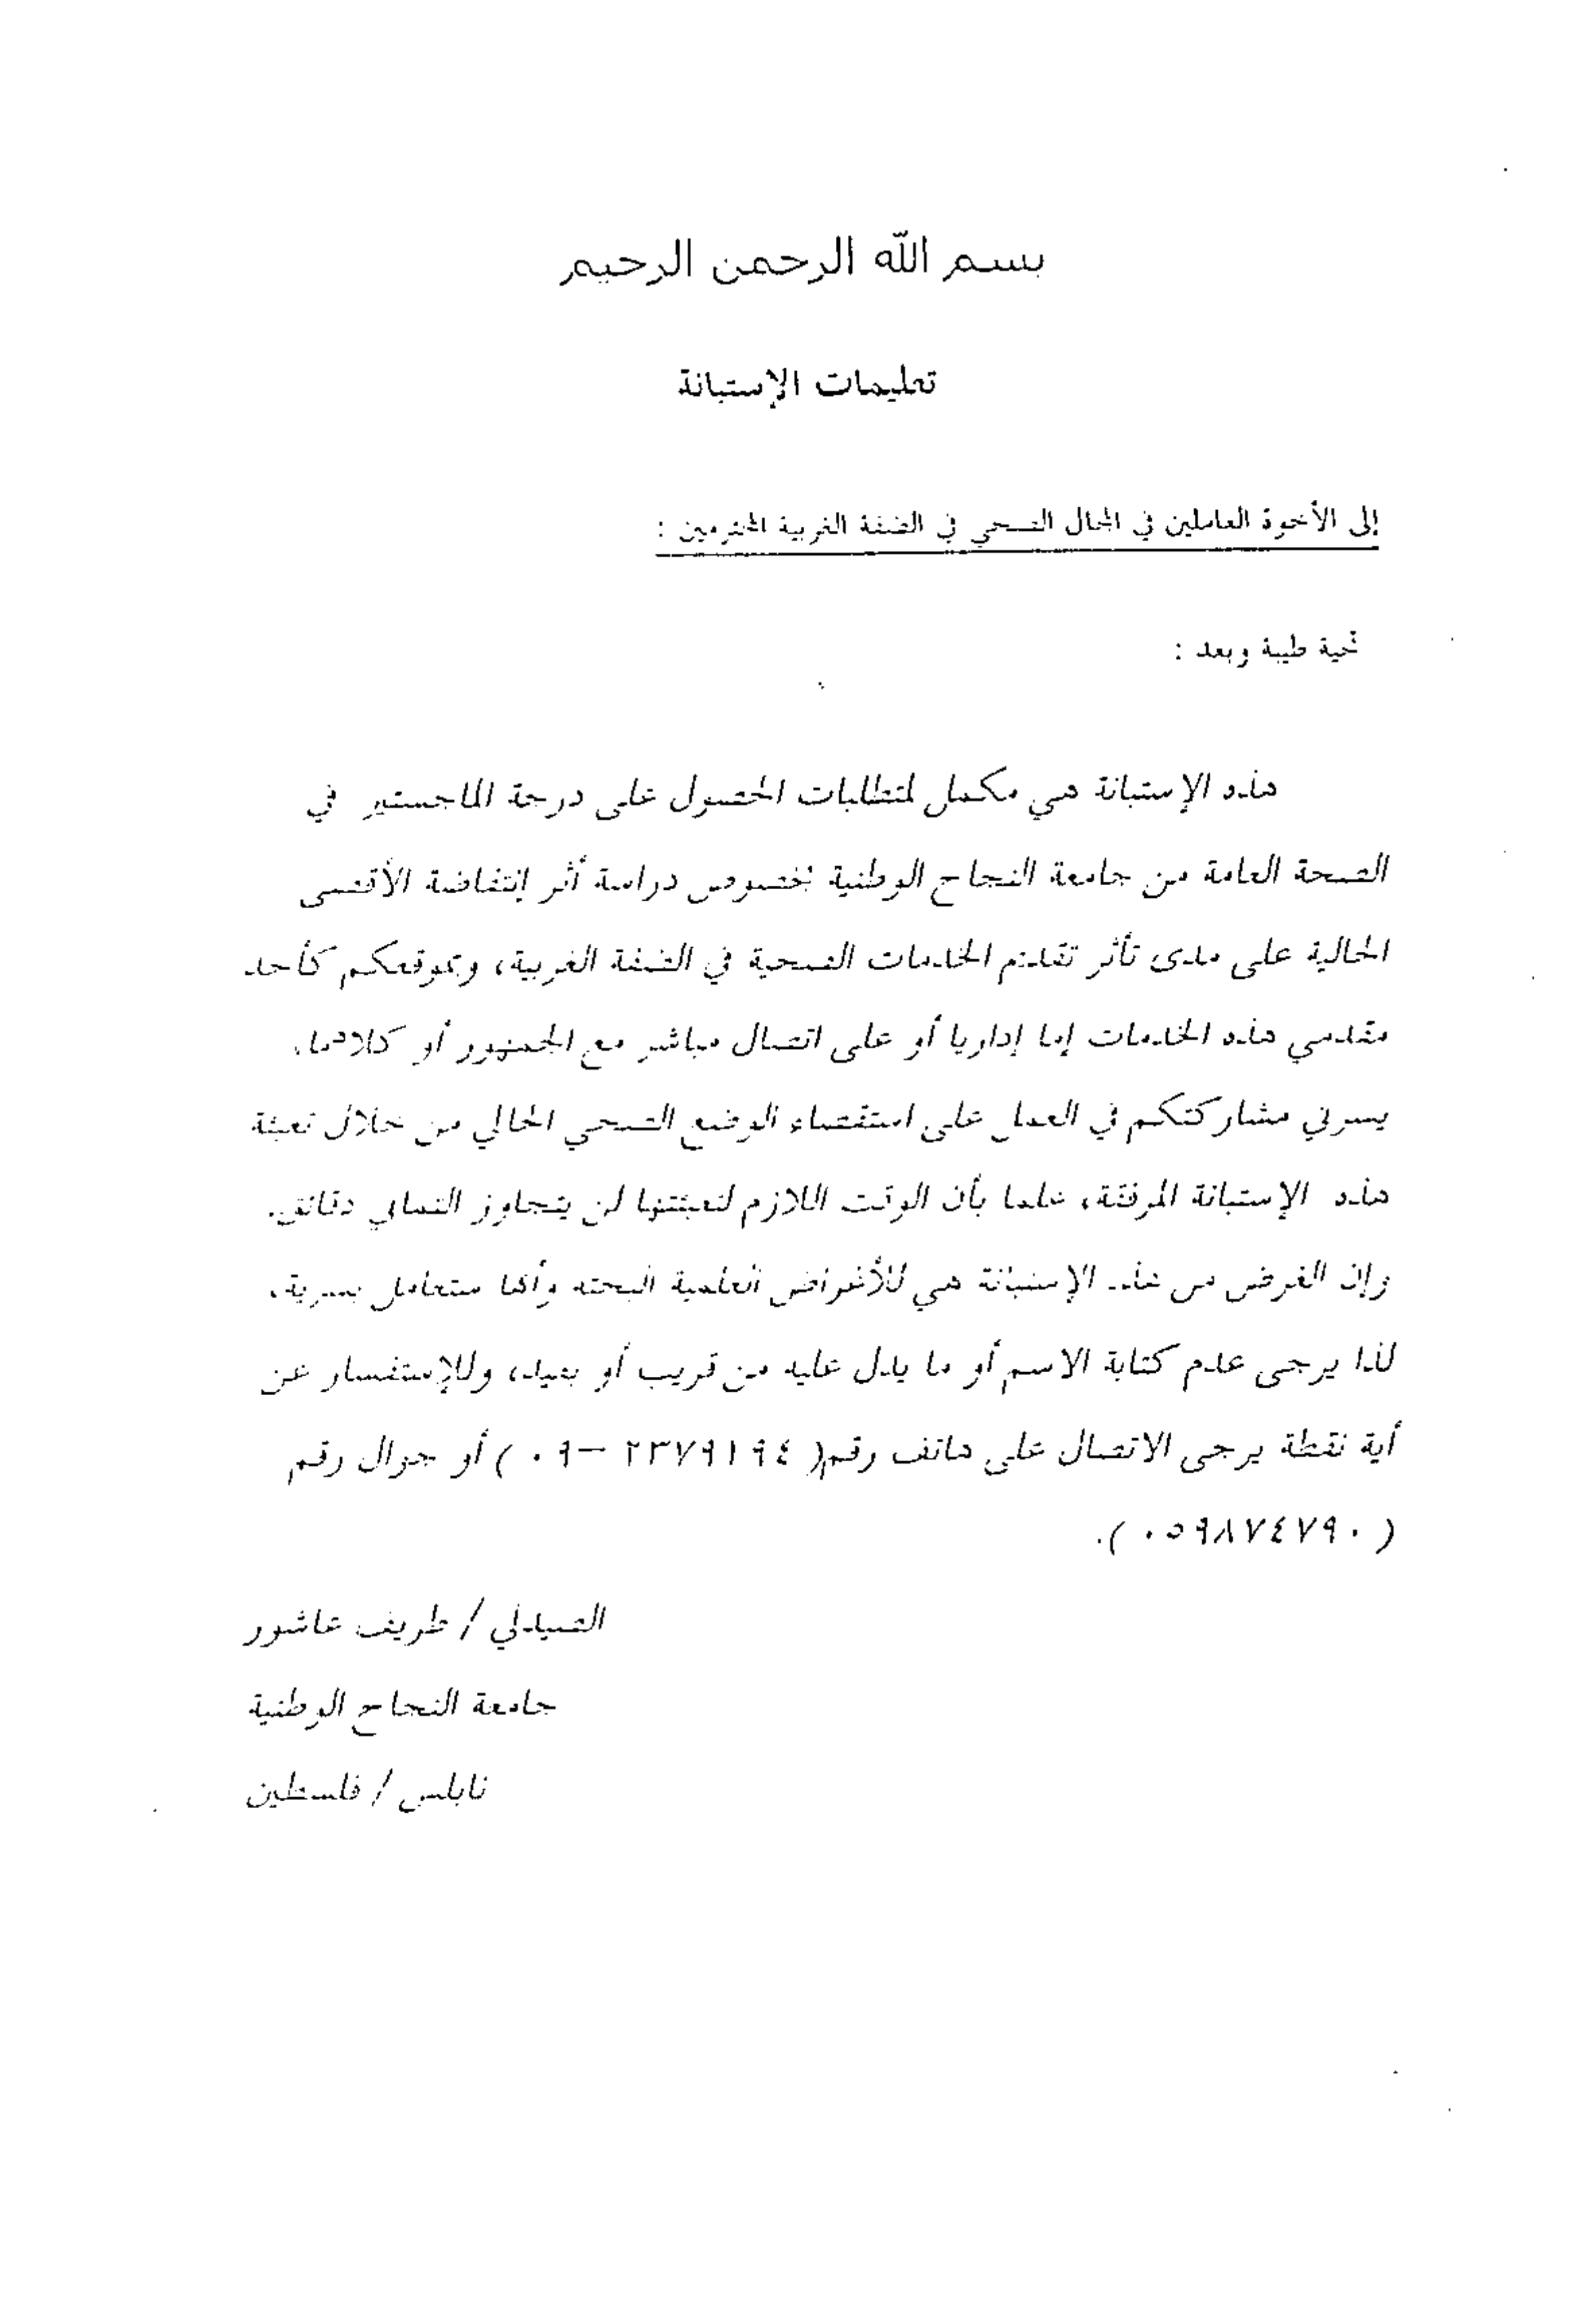 بسم الله الرحمن الرحيم
تعليمات الإستبانة
إلى الأخوة العاملين في المجال الصحي في الضفة الغربية المحترمين :
تحية طيبة وبعد :
هذه الإستبانة هي مكمل لمتطلبات الحصول على درجة الماجستير في
الصحة العامة من جامعة النجاح الوطنية بخصوص دراسة أثر إنتفاضة الأقصى
الحالية على مدى تأثر تقديم الخدمات الصحية في الضفة الغربية، وبموقعكم كأحد
مقدمي هذه الخدمات إما إداريا أو على اتصال مباشر مع الجمهور أو كلاهما،
يسرني مشاركتكم في العمل على استقصاء الوضع الصحي الحالي من خلال تعبئة
هذه الإستبانة المرفقة، علما بأن الوقت اللازم لتعبئتها لن يتجاوز الثماني دقائق.
وإن الغرض من هذه الإستبانة هي للأغراض العلمية البحته وأنها ستعامل بسرية،
لذا يرجى عدم كتابة الاسم أو ما يدل عليه من قريب أو بعيد، وللإستفسار عن
أية نقطة يرجى الاتصال على هاتف رقم( ٢٣٧٩١٩٤ –٠٩ ) أو جوال رقم
( ٠٥٩٨٧٤٧٩٠ ).
الصيدلي / ظريف عاشور
جامعة النجاح الوطنية
نابلس / فلسطين